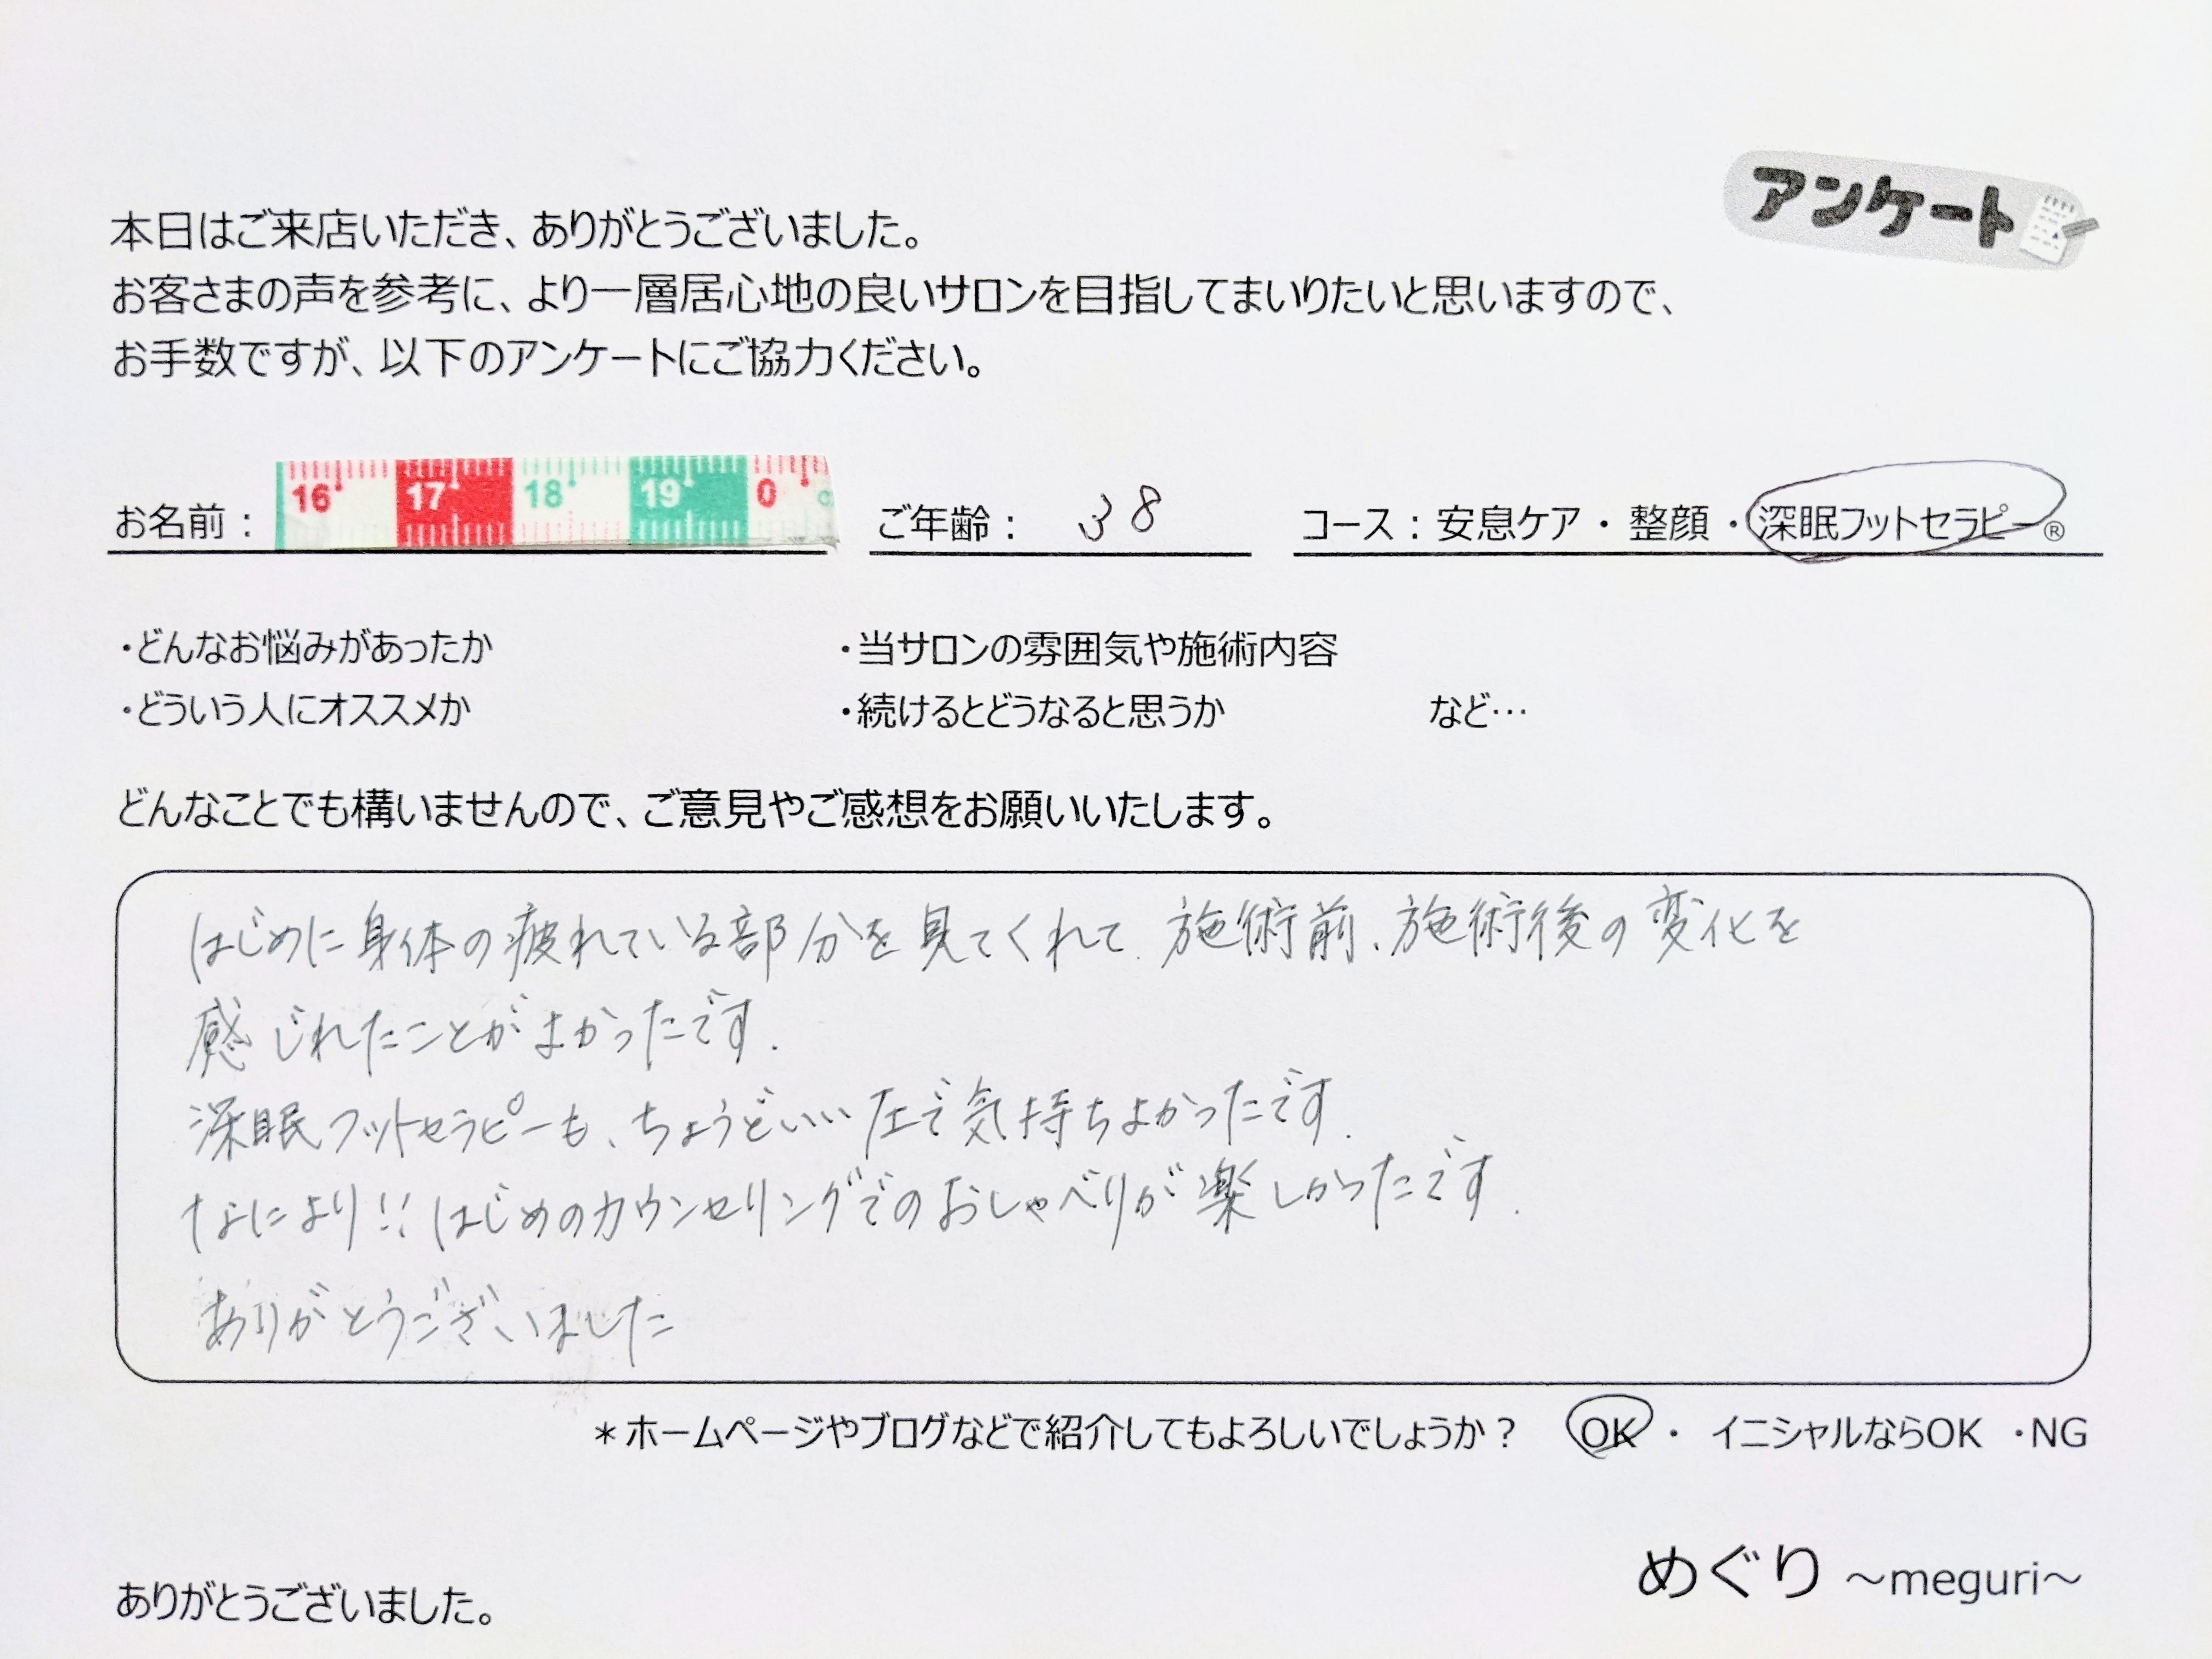 アンケート
本日はご来店いただき、ありがとうございました。
お客さまの声を参考に、より一層居心地の良いサロンを目指してまいりたいと思いますので、
お手数ですが、以下のアンケートにご協力ください。
お名前： 16 17 18 19 0 ご年齢： 38 コース：安息ケア・整顔・深眠フットセラピー®
・どんなお悩みがあったか ・当サロンの雰囲気や施術内容
・どういう人にオススメか ・続けるとどうなると思うか など…
どんなことでも構いませんので、ご意見やご感想をお願いいたします。
はじめに身体の疲れている部分を見てくれて、施術前、施術後の変化を
感じれたことがよかったです.
深眠フットセラピーも、ちょうどいい圧で気持ちよかったです.
なにより!! はじめのカウンセリングでのおしゃべりが楽しかったです.
ありがとうございました
＊ホームページやブログなどで紹介してもよろしいでしょうか？ OK ・ イニシャルならOK ・NG
めぐり ～meguri～
ありがとうございました。